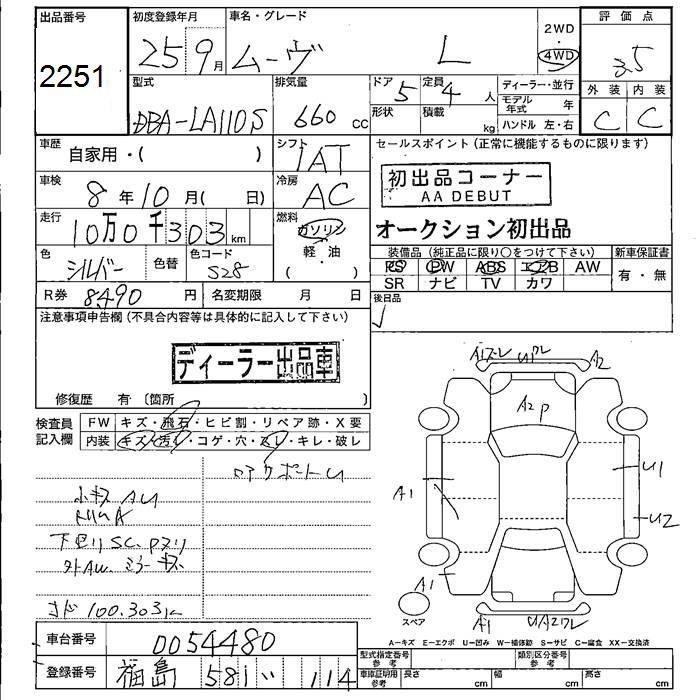 出品番号
2251
初度登録年月
25 9月
車名・グレード
ムーヴ L
2WD
4WD
評価点
3.5
外装 内装
C C
型式
DBA-LA110S
排気量
660 cc
ドア 5
形状
定員 4 人
積載 kg
ディーラー・並行
モデル年式 年
ハンドル 左・右
車歴
自家用・( )
シフト
IAT
セールスポイント (正常に機能するものに限ります)
初出品コーナー
AA DEBUT
オークション初出品
車検
8年10月( 日)
冷房
AC
走行
10万0千303km
燃料
ガソリン
軽・油
( )
色
シルバー
色替
色コード
S28
装備品 (純正品に限り○をつけて下さい)
PS PW ABS エアB AW
SR ナビ TV カワ
新車保証書
有・無
R券 8490 円
名変期限 月 日
後日品
注意事項申告欄 (不具合内容等は具体的に記入して下さい)
ディーラー出品車
修復歴 有 〔箇所 〕
検査員記入欄
FW キズ・飛石・ヒビ割・リペア跡・X要
内装 キズ・汚れ・コゲ・穴・スレ・キレ・破レ
小キズ AU
下廻り SC. Pヌリ
外AW. ミラーキズ
100.303k
A2P
A2
A1
A1
A1
U1
U2
スペア
A-キズ E-エクボ U-凹み W-補修跡 S-サビ C-腐食 XX-交換済
車台番号
0054480
登録番号
福島 581 い 114
型式指定番号 参考
類別区分番号 参考
車庫証明用 参考
長さ cm
幅 cm
高さ cm